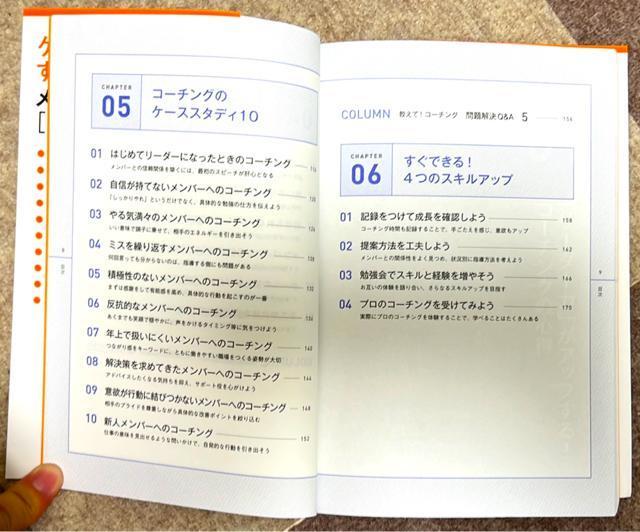 CHAPTER
05
コーチングの
ケーススタディ10
01 はじめてリーダーになったときのコーチング
メンバーとの信頼関係を築くには、最初のスピーチが肝心となる
02 自信が持てないメンバーへのコーチング
「しっかりやれ」というだけでなく、具体的な勉強の仕方を伝えよう
03 やる気満々のメンバーへのコーチング
いい意味で調子に乗せて、相手のエネルギーを引き出そう
04 ミスを繰り返すメンバーへのコーチング
何回言っても分からないのは、指導する側にも問題がある
05 積極性のないメンバーへのコーチング
まずは感謝をして有能感を高め、具体的な行動を起こすのが一番
06 反抗的なメンバーへのコーチング
あくまでも笑顔で穏やかに、声をかけるタイミング等に気をつけよう
07 年上で扱いにくいメンバーへのコーチング
つながり感をキーワードに、ともに働きやすい職場をつくる姿勢が大切
08 解決策を求めてきたメンバーへのコーチング 144
アドバイスしたくなる気持ちを抑え、サポート役を心がけよう
09 意欲が行動に結びつかないメンバーへのコーチング 148
相手のプライドを尊重しながら具体的な改善ポイントを絞り込む
10 新人メンバーへのコーチング 152
仕事の意味を見出せるような問いかけで、自発的な行動を引き出そう
8
目次
COLUMN 教えて!コーチング 問題解決Q&A 5 156
CHAPTER
06
すぐできる!
4つのスキルアップ
01 記録をつけて成長を確認しよう 158
コーチング時間も記録することで、手ごたえを感じ、意欲もアップ
02 提案方法を工夫しよう 162
メンバーとの関係性をよく見つめ、状況別に指導方法を考えよう
03 勉強会でスキルと経験を増やそう 166
お互いの体験を語り合い、さらなるスキルアップを目指す
04 プロのコーチングを受けてみよう 170
実際にプロのコーチングを体験することで、学べることはたくさんある
9
目次